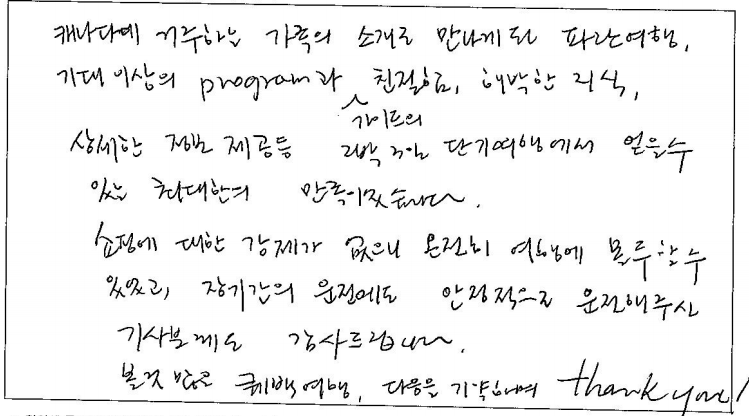 캐나다에 거주하는 가족의 소개로 만나게 된 파란여행,
기대 이상의 program과 가이드의 친절함, 해박한 지식,
상세한 정보 제공등 2박 3일 단기여행에서 얻을수
있는 최대한의 만족이었습니다.
쇼핑에 대한 강제가 없으니 온전히 여행에 몰두할수
있었고, 장기간의 운전에도 안정적으로 운전해주신
기사분께도 감사드립니다.
볼것 많고 퀘백여행, 다음을 기약하며 thank you!